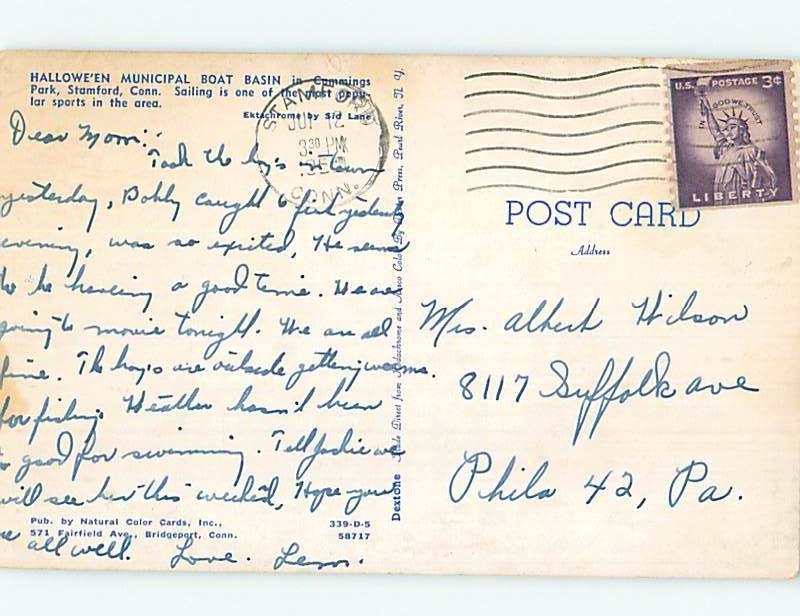 HALLOWE'EN MUNICIPAL BOAT BASIN in Cummings
Park, Stamford, Conn. Sailing is one of the most popu-
lar sports in the area.
Ektachrome by Sid Lane
Dear Mom:
Took the boys in town
yesterday, Bobby caught 6 fish yesterday
evening, was so excited, He seems
to be haveing a good time. We are
going to movie tonight. We are all
fine. The boys are outside getting worms.
for fishing. Weather hasn't been
good for swimming. Tell Jackie we
will see her this weekend, Hope your
all well. Love.
Pub. by Natural Color Cards, Inc.,
571 Fairfield Ave., Bridgeport, Conn.
339-D-5
58717
Dextone Made Direct from Kodachrome and Ansco Color By Dexter Press, Pearl River, N. Y.
STAMFORD
12
3 30 PM
CONN.
U.S. POSTAGE 3¢
IN GOD WE TRUST
LIBERTY
POST CARD
Address
Mrs. Albert Wilson
8117 Suffolk ave
Phila 42, Pa.